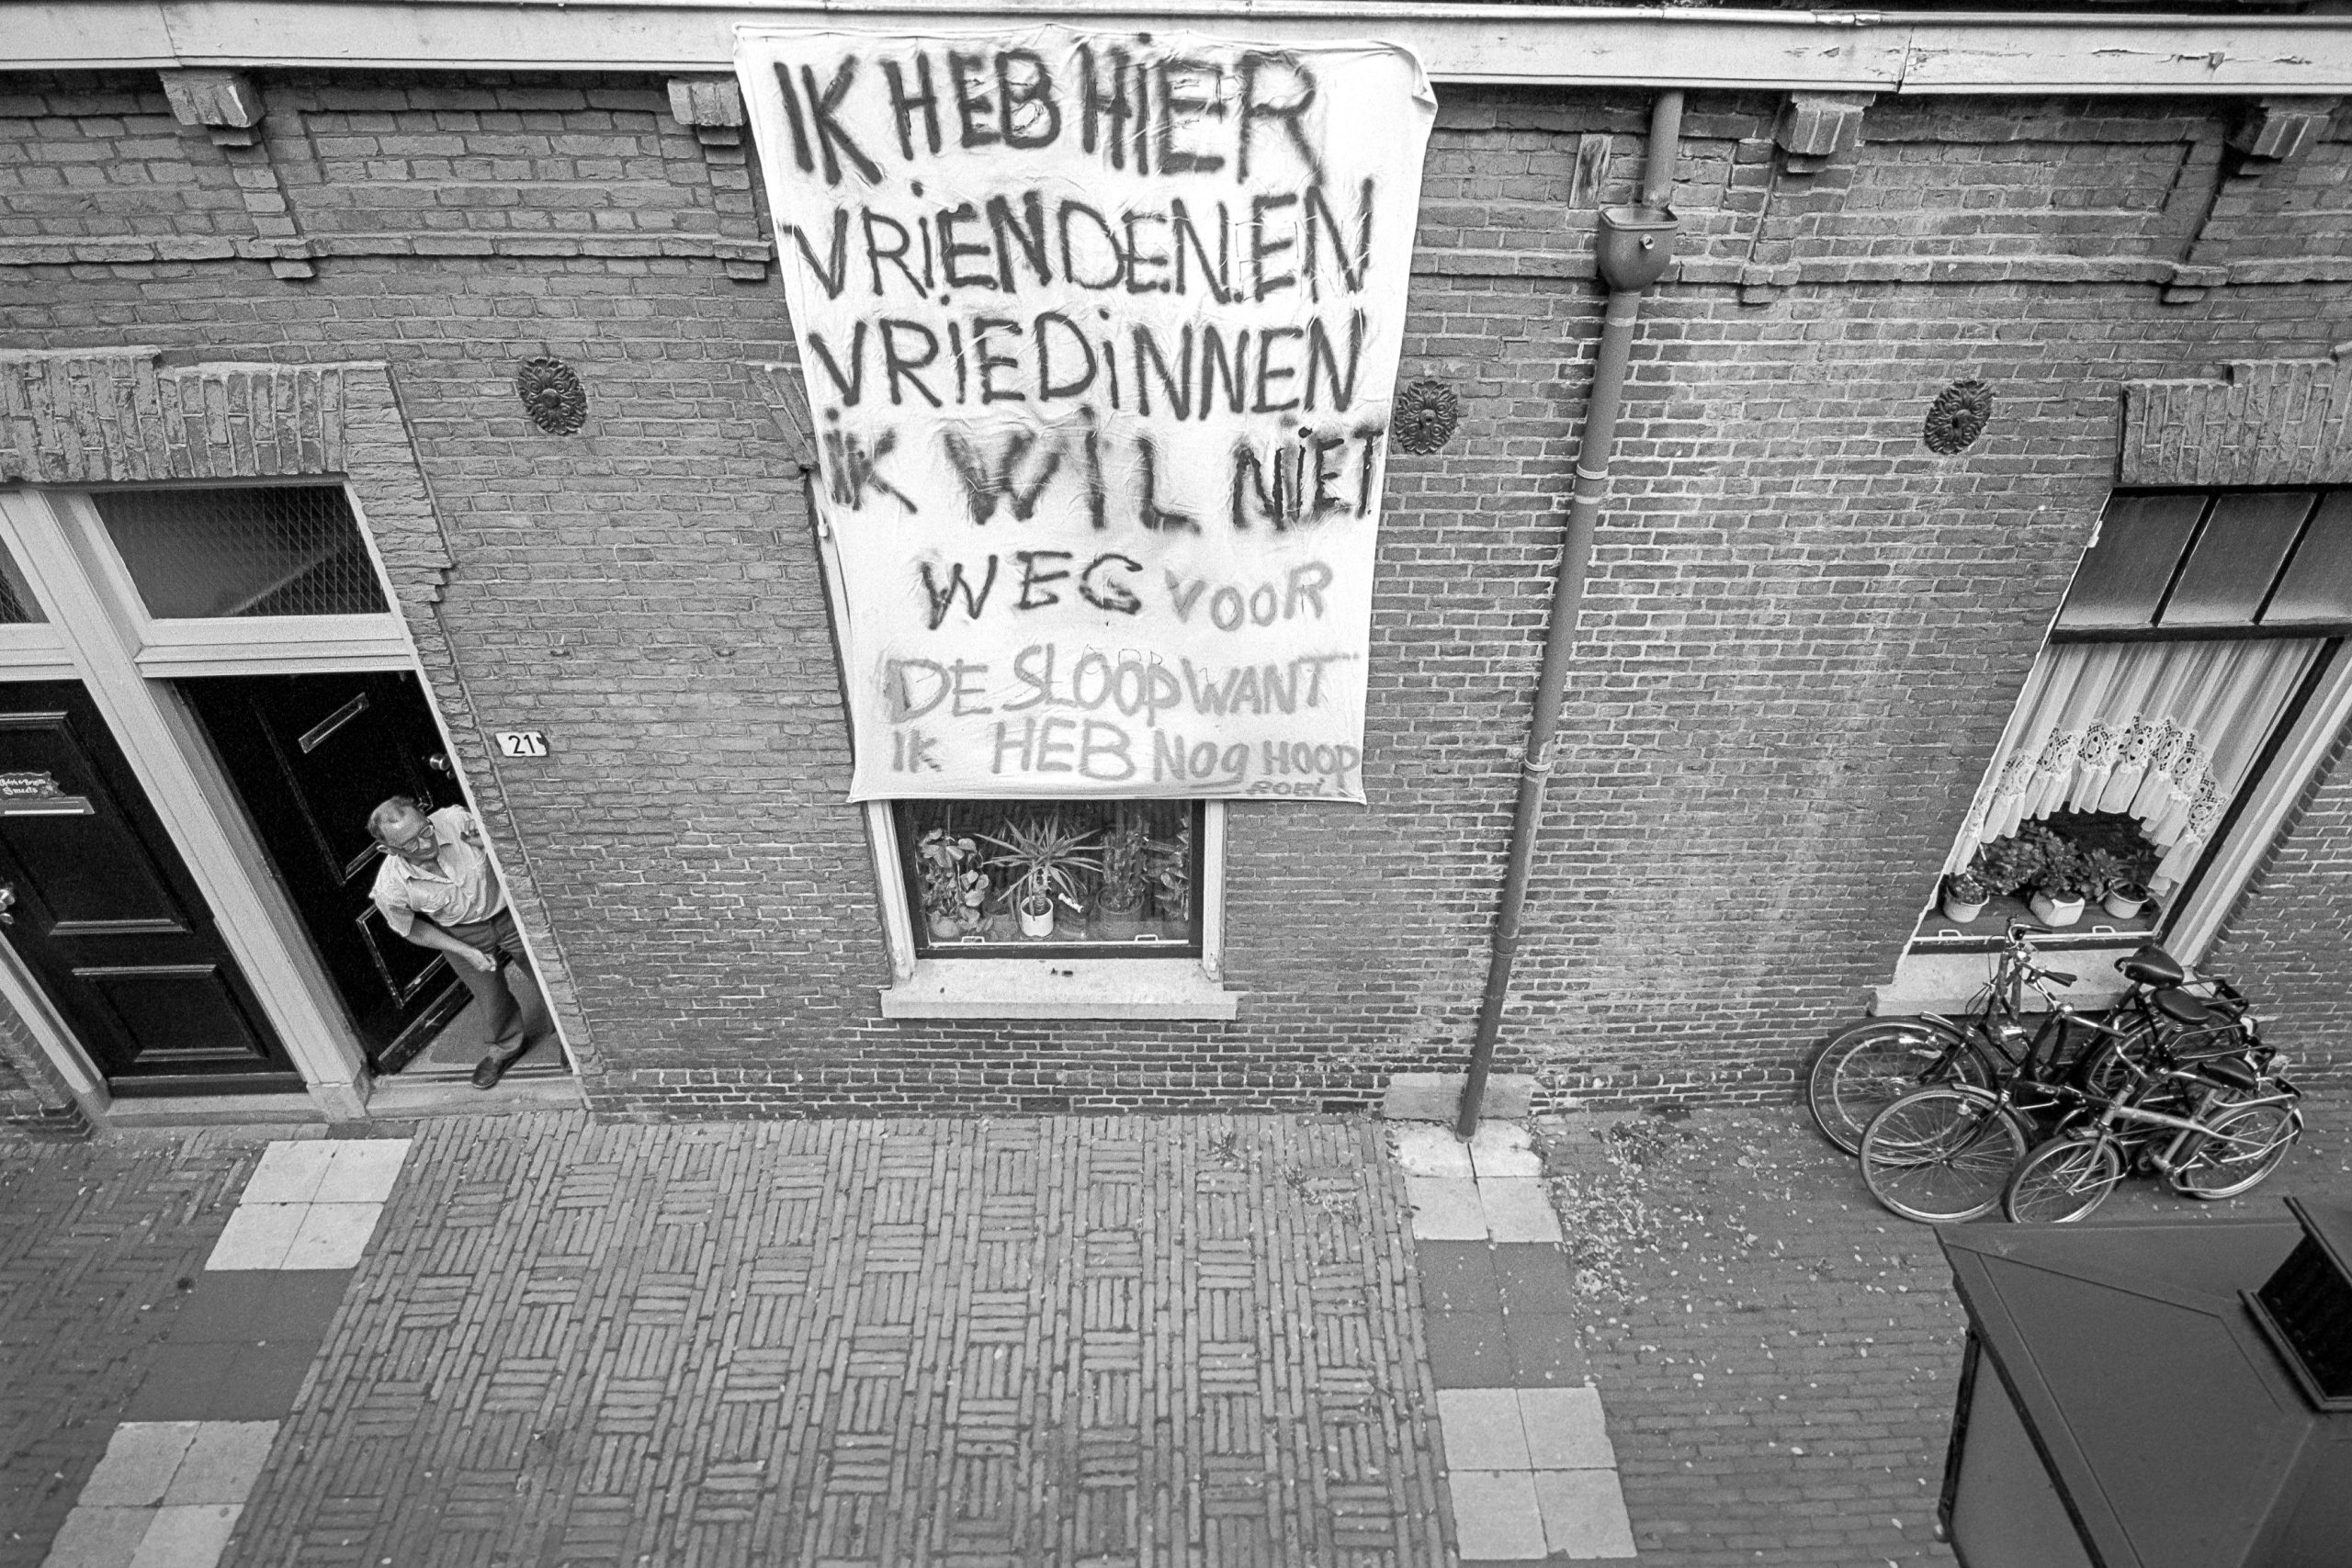 IK HEB HIER
VRIENDEN.EN
VRIEDINNEN
IK WIL NIET
WEG VOOR
DE SLOOP WANT
IK HEB NOG HOOP
21
Smeets